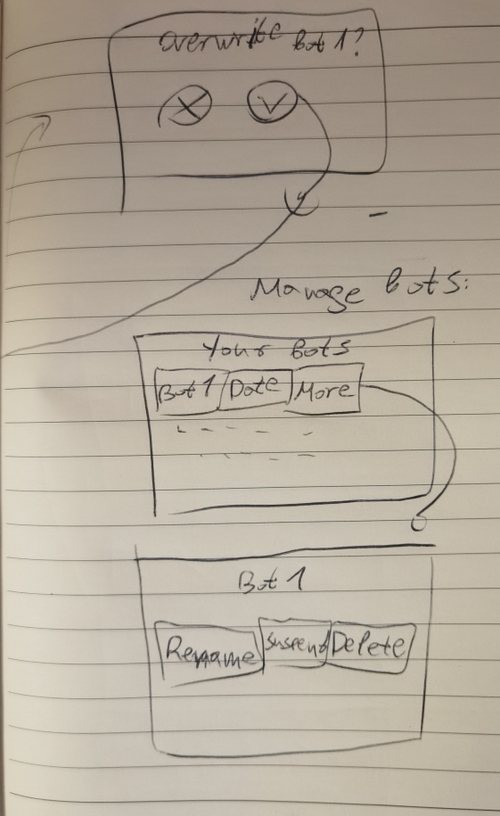 overwrite Bot 1?
X V
Manage Bots:
Your Bots
Bot 1 Date More
Bot 1
Rename Suspend Delete